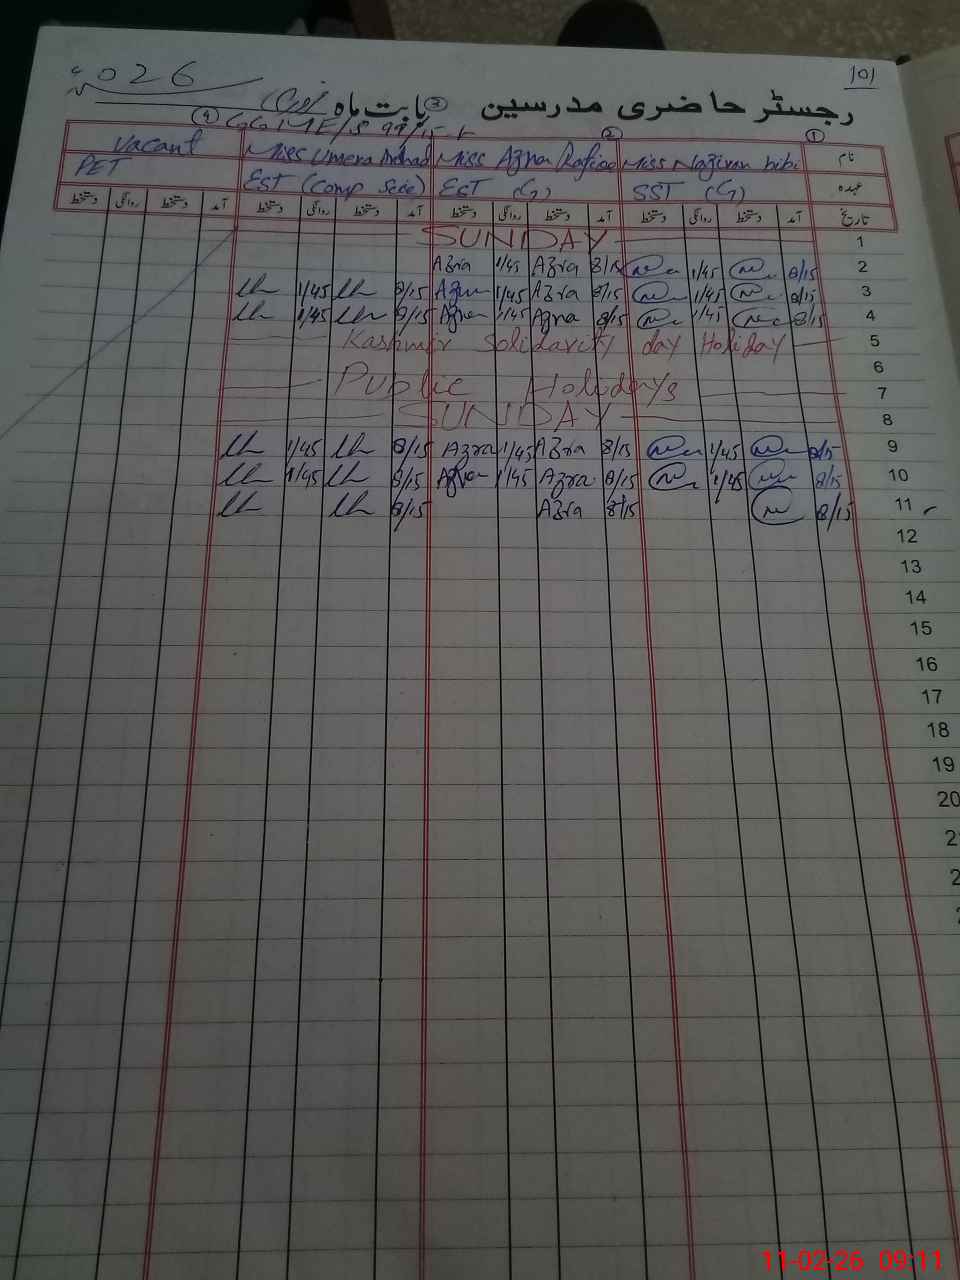 2026 101
رجسٹر حاضری مدرسین ③ بابت ماہ فروری
④ GGMES 99/15-L ② ①
نام Miss Naziran bibi Miss Azra Rafiq Miss Umera Arshad Vacant
عہدہ SST (G) EST (G) EST (Comp Scie) PET
تاریخ آمد دستخط روانگی دستخط آمد دستخط روانگی دستخط آمد دستخط روانگی دستخط آمد دستخط روانگی دستخط
1 SUNDAY
2 8/15 1/45 8/15 Azra 1/45 Azra
3 8/15 1/45 8/15 Azra 1/45 Azra 8/15 1/45
4 8/15 1/45 8/15 Azra 1/45 Azra 8/15 1/45
5 Kashmir Solidarity day Holiday
6
7 Public Holidays
8 SUNDAY
9 8/15 1/45 8/15 Azra 1/45 Azra 8/15 1/45
10 8/15 1/45 8/15 Azra 1/45 Azra 8/15 1/45
11 8/15 8/15 Azra 8/15
12
13
14
15
16
17
18
19
20
11-02-26 09:11